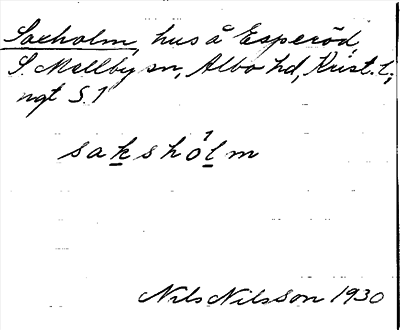 Saxholm, hus å Esperöd,
S. Mellby sn, Albo hd, Krist. l;
ngt S. 1
saksho'lm
Nils Nilsson 1930